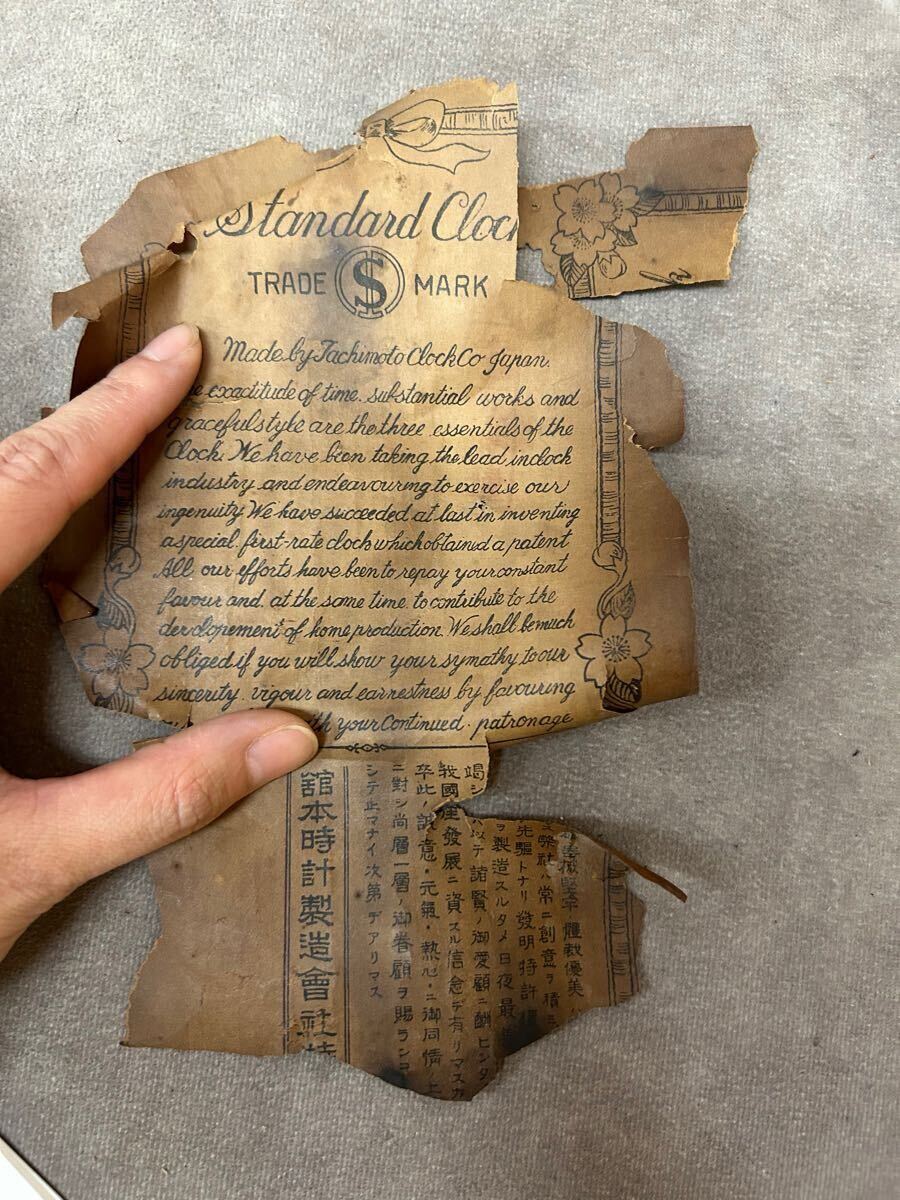 Standard Cloc
TRADE $ MARK
Made by Tachimoto Clock Co Japan.
e exactitude of time. substantial works and
graceful style are the three essentials of the
Clock. We have been taking the lead in clock
industry and endeavouring to exercise our
ingenuity We have succeeded at last in inventing
a special first-rate clock which obtained a patent
All our efforts have been to repay your constant
favour and at the same time. to contribute to the
developement of home production. We shall be much
obliged if you will show your symathy to our
sincerity. vigour and earnestness by favouring
th your Continued. patronage
體裁優美
ハ常ニ創意ヲ積ミ
先驅トナリ發明特許
ヲ製造スルタメ日夜最
竭シ以テ諸賢ノ御愛顧ニ酬ヒンタ
我國産發展ニ資スル信念デ有リマスカ
卒此ノ誠意・元氣・熱心ニ御同情ノ上
ニ對シ尚層一層ノ御眷顧ヲ賜ランコ
シテ止マナイ次第デアリマス
舘本時計製造會社